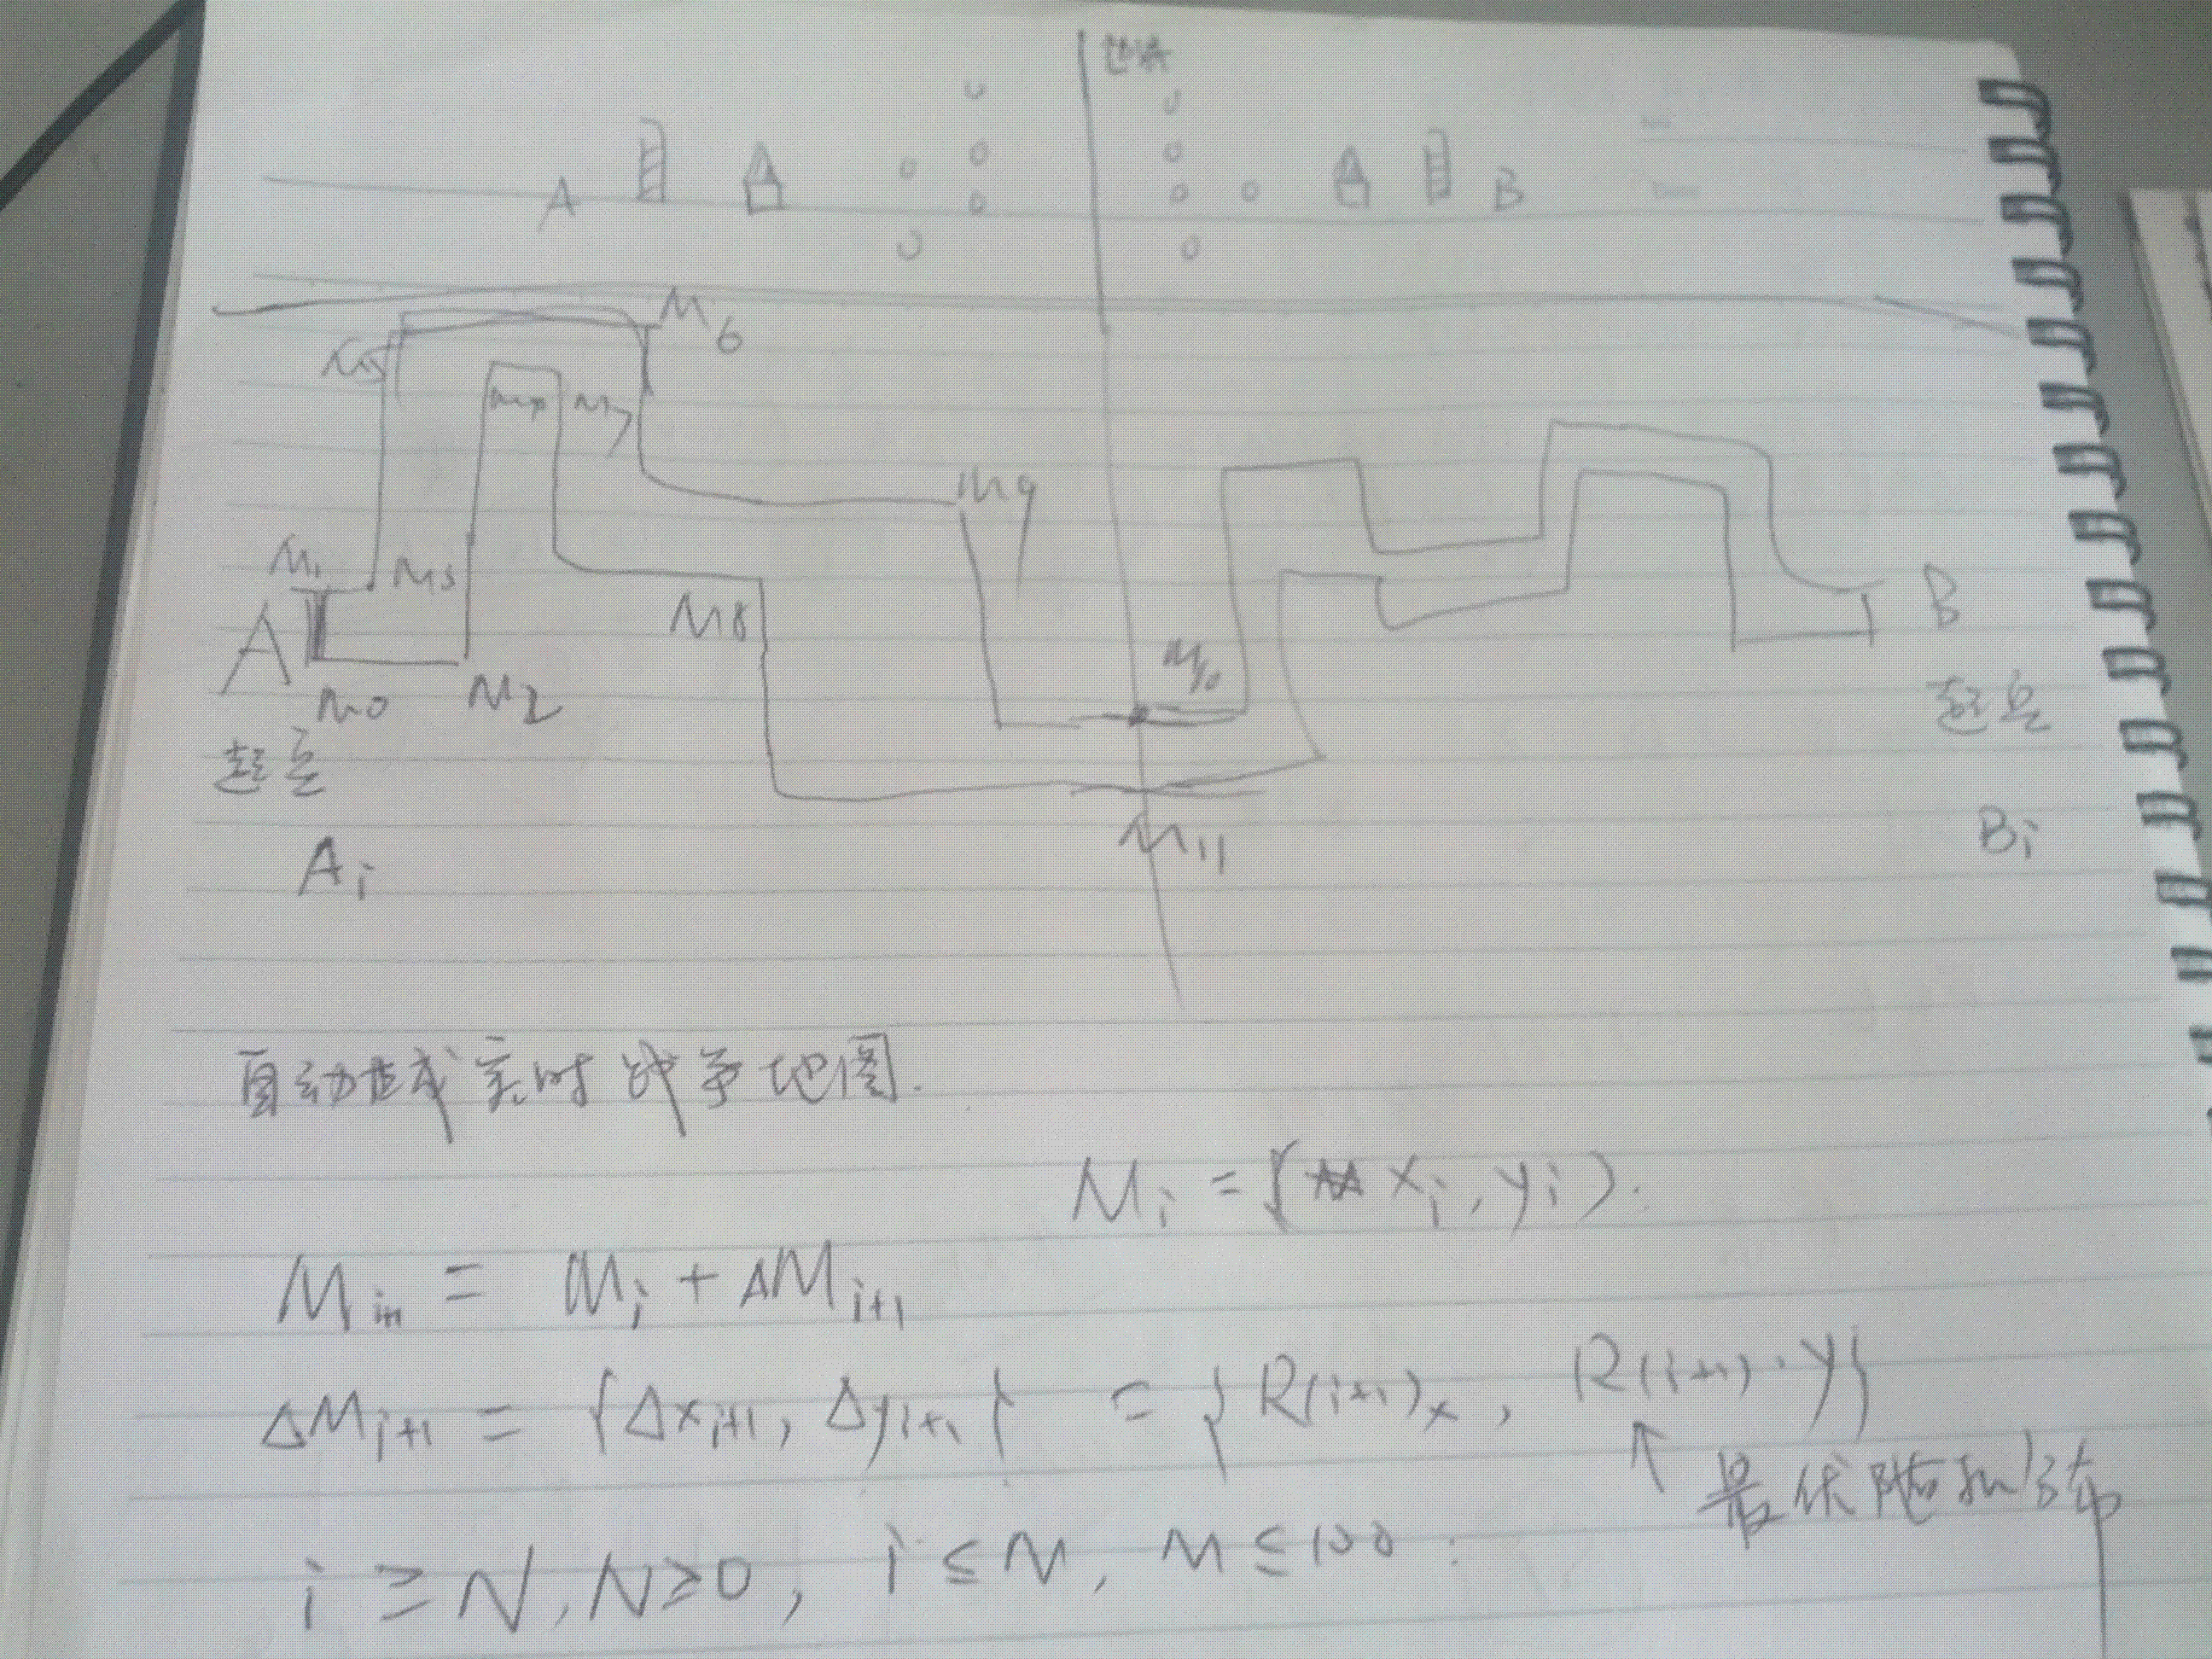 A B
M6
M5
M4 M7
M9
M1 M3
A M8 B
M0 M2 M10
起点 起点
M11
Ai Bi
自动生成实时战争地图.
Mi = { xi, yi }.
Mi+1 = Mi + ΔMi+1
ΔMi+1 = { Δxi+1, Δyi+1 } = { R(i+1)x, R(i+1)·y }
↑ 最优随机
i ≥ N, N≥0, i ≤ M, M ≤ 100.